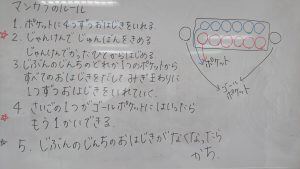 マンカラのルール
1. ポケットに4つずつおはじきをいれる
2. じゃんけんでじゅんばんをきめる
じゃんけんでかったひとからはじめる
3. じぶんのじんちのどれか1つのポケットから
すべてのおはじきをだしてみぎまわりに
1つずつおはじきをいれていく.
4 さいごの1つがゴールポケットにはいったら
もう1かいできる.
5. じぶんのじんちのおはじきがなくなったら
かち.
ポケット
ゴール
ポケット